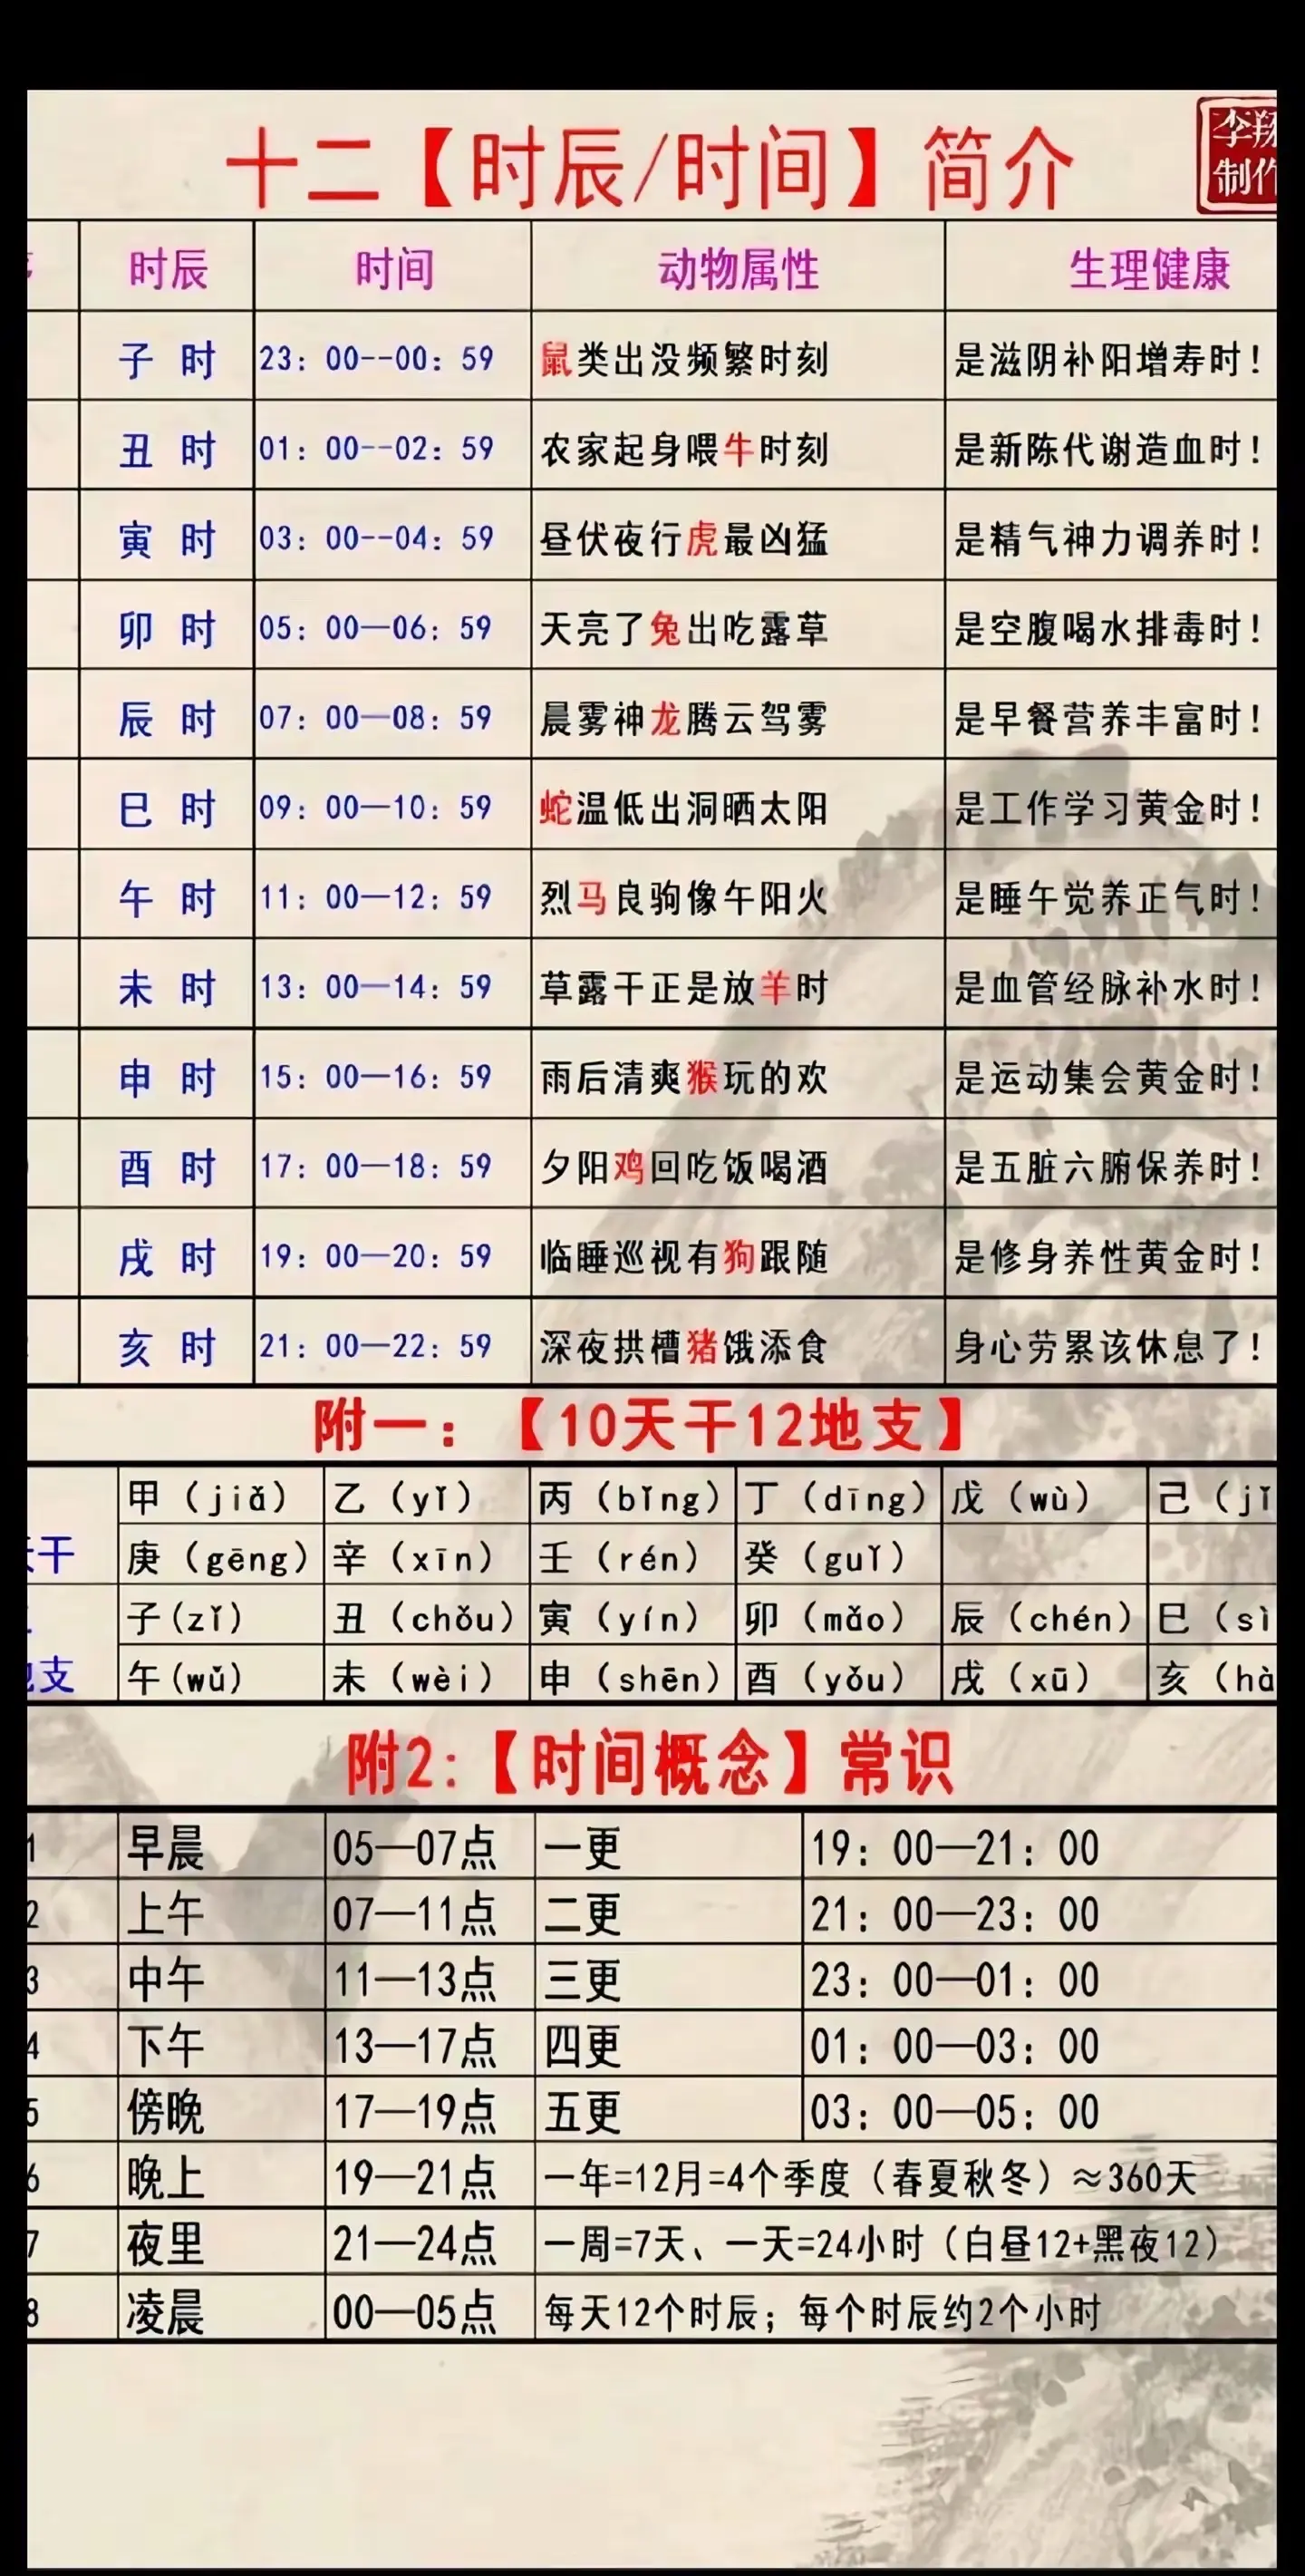 十二【时辰/时间】简介
李翔
制作
时辰 时间 动物属性 生理健康
子 时 23：00--00：59 鼠类出没频繁时刻 是滋阴补阳增寿时！
丑 时 01：00--02：59 农家起身喂牛时刻 是新陈代谢造血时！
寅 时 03：00--04：59 昼伏夜行虎最凶猛 是精气神力调养时！
卯 时 05：00—06：59 天亮了兔出吃露草 是空腹喝水排毒时！
辰 时 07：00—08：59 晨雾神龙腾云驾雾 是早餐营养丰富时！
巳 时 09：00—10：59 蛇温低出洞晒太阳 是工作学习黄金时！
午 时 11：00—12：59 烈马良驹像午阳火 是睡午觉养正气时！
未 时 13：00—14：59 草露干正是放羊时 是血管经脉补水时！
申 时 15：00—16：59 雨后清爽猴玩的欢 是运动集会黄金时！
酉 时 17：00—18：59 夕阳鸡回吃饭喝酒 是五脏六腑保养时！
戌 时 19：00—20：59 临睡巡视有狗跟随 是修身养性黄金时！
亥 时 21：00—22：59 深夜拱槽猪饿添食 身心劳累该休息了！
附一：【10天干12地支】
甲（jiǎ） 乙（yǐ） 丙（bǐng） 丁（dīng） 戊（wù） 己（jǐ
天干 庚（gēng） 辛（xīn） 壬（rén） 癸（guǐ）
子(zǐ) 丑（chǒu） 寅（yín） 卯（mǎo） 辰（chén） 巳（sì
地支 午(wǔ) 未（wèi） 申（shēn） 酉（yǒu） 戌（xū） 亥（hà
附2:【时间概念】常识
1 早晨 05—07点 一更 19：00—21：00
2 上午 07—11点 二更 21：00—23：00
3 中午 11—13点 三更 23：00—01：00
4 下午 13—17点 四更 01：00—03：00
5 傍晚 17—19点 五更 03：00—05：00
6 晚上 19—21点 一年=12月=4个季度（春夏秋冬）≈360天
7 夜里 21—24点 一周=7天、一天=24小时（白昼12+黑夜12）
8 凌晨 00—05点 每天12个时辰；每个时辰约2个小时